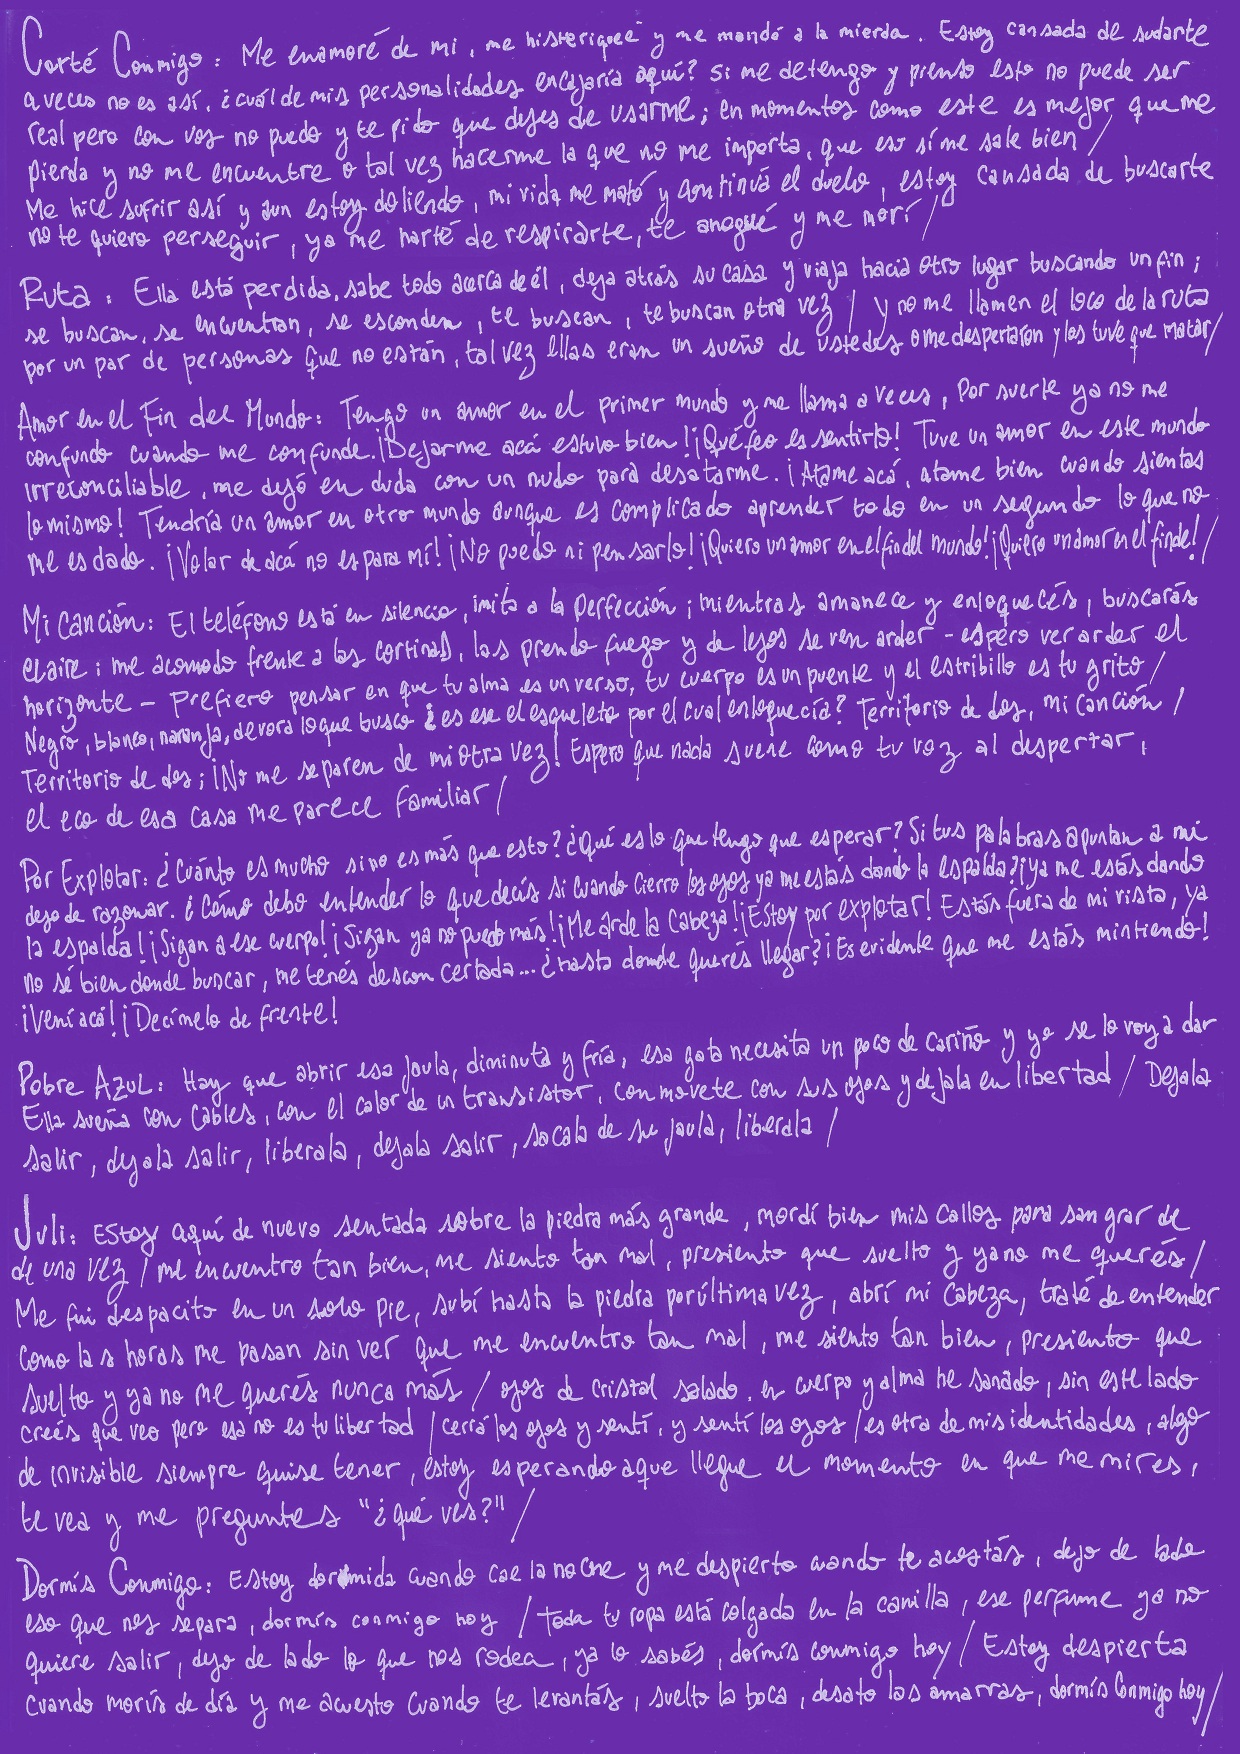 Corté Conmigo: Me enamoré de mi, me histeriqueé y me mandó a la mierda. Estoy cansada de sudarte
a veces no es así. ¿cuál de mis personalidades encajaría aquí? Si me detengo y pienso esto no puede ser
real pero con vos no puedo y te pido que dejes de usarme; en momentos como este es mejor que me
pierda y no me encuentre o tal vez hacerme la que no me importa, que eso sí me sale bien /
Me hice sufrir así y aun estoy doliendo, mi vida me mató y continuá el duelo, estoy cansada de buscarte
no te quiero perseguir, ya me harté de respirarte, te ahogué y me morí /
Ruta: Ella está perdida, sabe todo acerca de él, deja atrás su casa y viaja hacia otro lugar buscando un fin;
se buscan, se encuentran, se esconden, te buscan, te buscan otra vez / y no me llamen el loco de la ruta
por un par de personas que no están, tal vez ellas eran un sueño de ustedes o me despertaron y los tuve que matar/
Amor en el Fin del Mundo: Tengo un amor en el primer mundo y me llama a veces, Por suerte ya no me
confundo cuando me confunde. ¡Dejarme acá estuvo bien! ¡Qué feo es sentirlo! Tuve un amor en este mundo
irreconciliable, me dejó en duda con un nudo para desatarme. ¡Atame acá, atame bien cuando sientas
lo mismo! Tendría un amor en otro mundo aunque es complicado aprender todo en un segundo lo que no
me es dado. ¡Volar de acá no es para mí! ¡No puedo ni pensarlo! ¡Quiero un amor en el fin del mundo! ¡Quiero un amor en el finde! /
Mi canción: El teléfono está en silencio, imita a la perfección; mientras amanece y enloquecés, buscarás
el aire; me acomodo frente a las cortinas, las prendo fuego y de lejos se ven arder - espero ver arder el
horizonte - Prefiero pensar en que tu alma es un verso, tu cuerpo es un puente y el estribillo es tu grito /
Negro, blanco, naranja, devora lo que busco ¿es ese el esqueleto por el cual enloquecía? Territorio de dos, mi canción /
Territorio de dos; ¡No me separen de mi otra vez! Espero que nada suene como tu voz al despertar,
el eco de esa casa me parece familiar /
Por Explotar: ¿Cuánto es mucho si no es más que esto? ¿Qué es lo que tengo que esperar? Si tus palabras apuntan a mí
dejo de razonar. ¿Cómo debo entender lo que decís si cuando cierro los ojos ya me estás dando la espalda? ¡ya me estás dando
la espalda! ¡Sigan a ese cuerpo! ¡Sigan ya no puedo más! ¡Me arde la Cabeza! ¡Estoy por explotar! Estás fuera de mi vista, ya
no sé bien donde buscar, me tenés desconcertada... ¿hasta donde querés llegar? ¡Es evidente que me estás mintiendo!
¡Vení acá! ¡Decímelo de frente!
Pobre Azul: Hay que abrir esa jaula, diminuta y fría, esa gata necesita un poco de cariño y yo se lo voy a dar
Ella sueña con cables, con el calor de un transistor, conmovete con sus ojos y dejala en libertad / Dejala
salir, dejala salir, liberala, dejala salir, sacala de su jaula, liberala /
Juli: Estoy aquí de nuevo sentada sobre la piedra más grande, mordí bien mis callos para sangrar de
de una vez / me encuentro tan bien, me siento tan mal, presiento que suelto y ya no me querés /
Me fui despacito en un solo pie, subí hasta la piedra por última vez, abrí mi cabeza, traté de entender
como las horas me pasan sin ver que me encuentro tan mal, me siento tan bien, presiento que
suelto y ya no me querés nunca más / ojos de cristal salado, en cuerpo y alma he sanado, sin este lado
creés que veo pero esa no es tu libertad / cerrá los ojos y sentí, y sentí los ojos / es otra de mis identidades, algo
de invisible siempre quise tener, estoy esperando a que llegue el momento en que me mires,
te vea y me preguntes "¿qué ves?" /
Dormís Conmigo: Estoy dormida cuando cae la noche y me despierto cuando te acostás, dejo de lado
eso que nos separa, dormís conmigo hoy / Toda tu ropa está colgada en la canilla, ese perfume ya no
quiere salir, dejo de lado lo que nos rodea, ya lo sabés, dormís conmigo hoy / Estoy despierta
cuando morís de día y me acuesto cuando te levantás, suelto la boca, desato las amarras, dormís conmigo hoy /